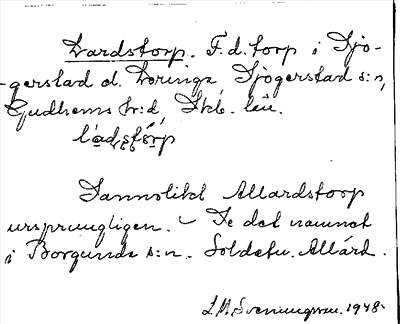 Lardstorp. F.d. torp i Sjö-
gerstad d. Sjögerstad s:n,
Gudhems hr:d, Skb. län.
Sannolikt Allardstorp
ursprungligen. – Se det namnet
i Borgunda s:n. Soldatn. Allárd.
L. M. Svenungsson. 1948.